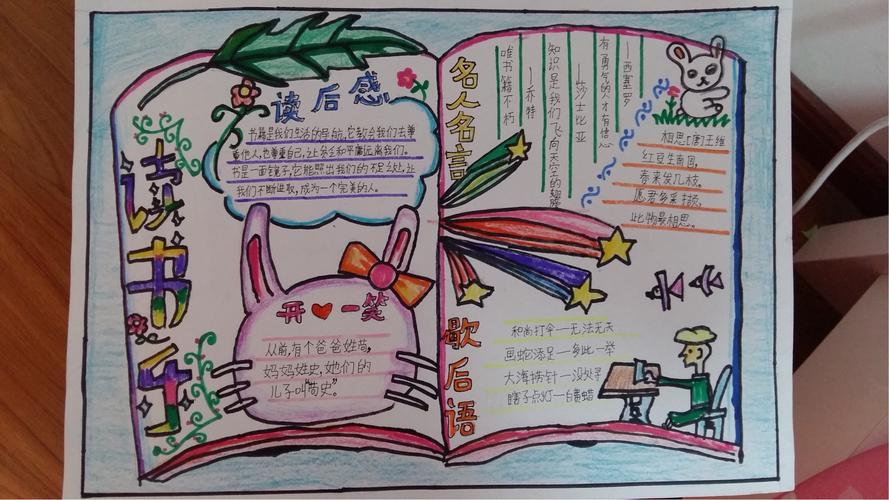 读书乐
读后感
书籍是我们生活的导航,它教会我们去尊
重他人,也尊重自己,让贪婪和平庸远离我们。
书是一面镜子,它能照出我们的不足之处,让
我们不断进取,成为一个完美的人。
开一笑
从前,有个爸爸姓苟,
妈妈姓史,她们的
儿子叫“苟史”。
名人名言
有勇气的人才有信心
——西塞罗
知识是我们飞向天空的翅膀
——莎士比亚
唯书籍不朽
——乔特
相思[唐]王维
红豆生南国,
春来发几枝。
愿君多采撷,
此物最相思。
歇后语
和尚打伞—无法无天
画蛇添足—多此一举
大海捞针—没处寻
瞎子点灯—白费蜡